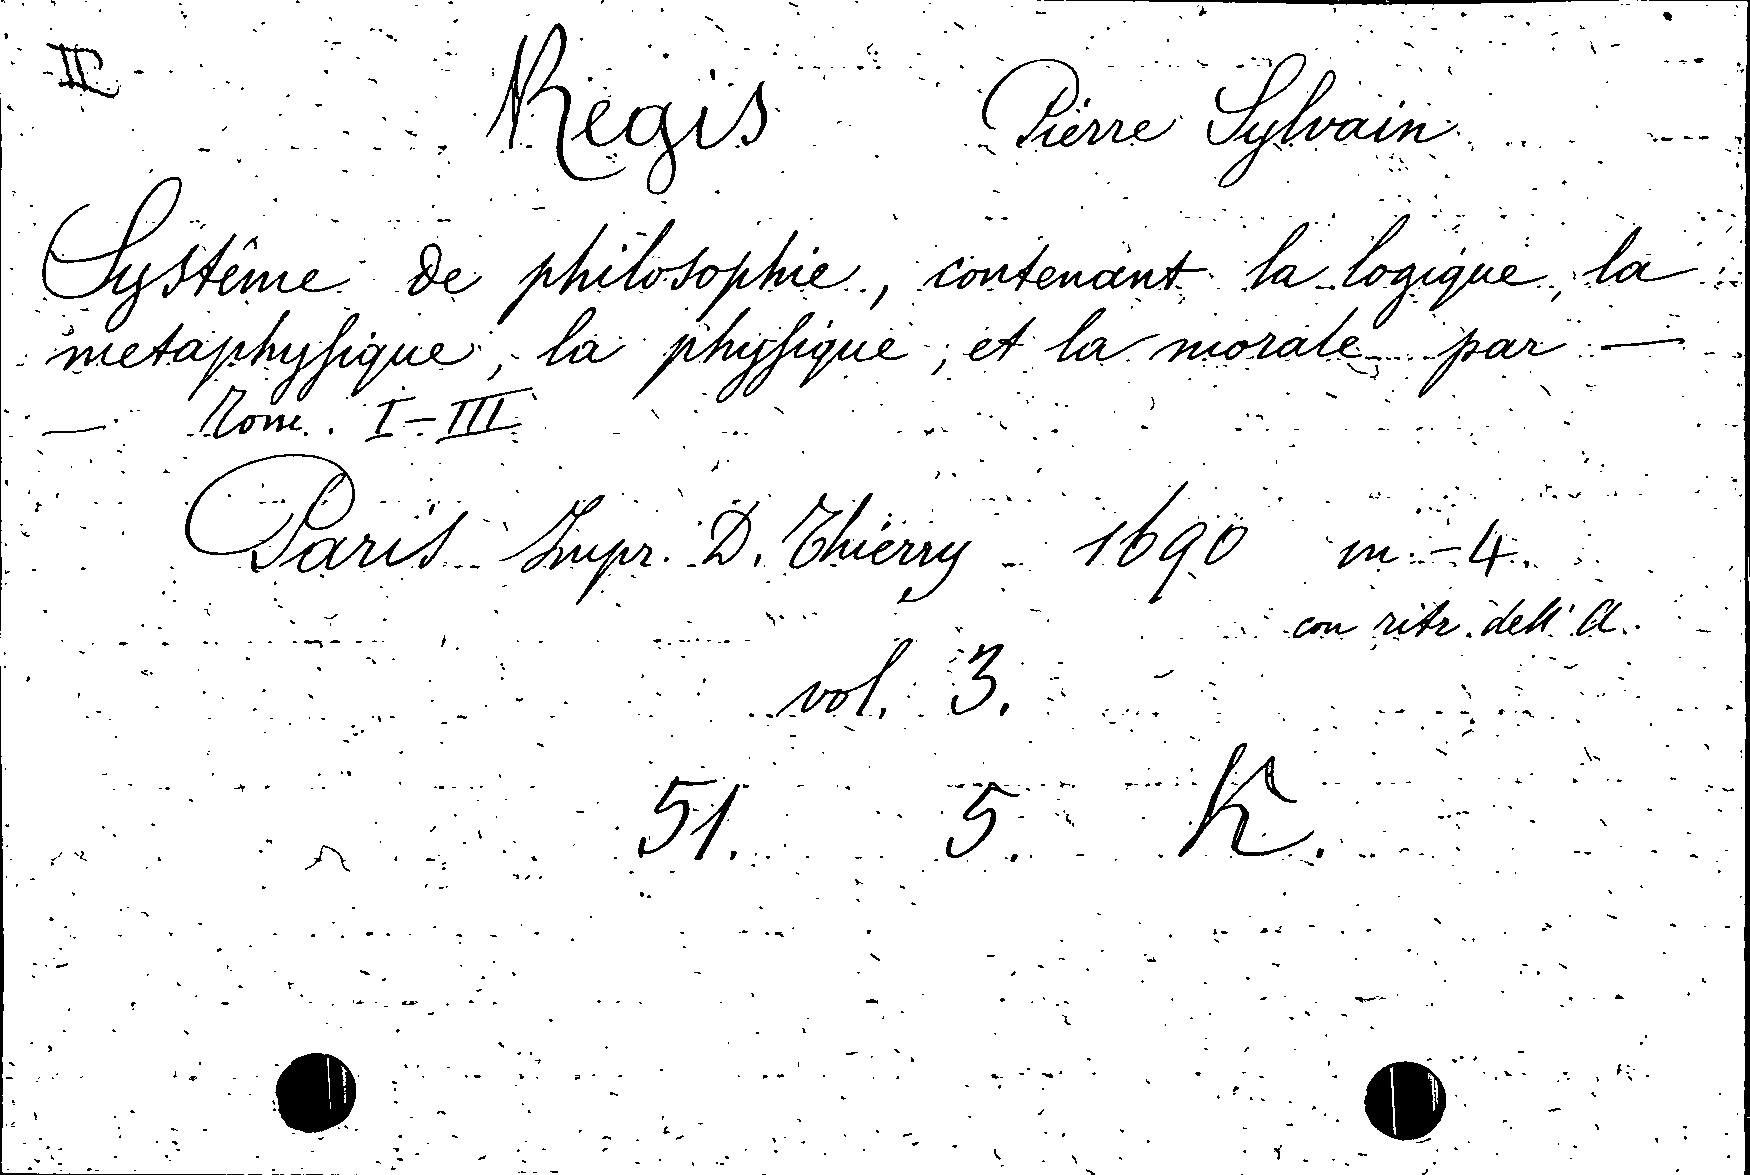 II
Regis Pierre Sylvain
Systême de philosophie, contenant la logique, la
metaphysique, la physique, et la morale par —
— Tom. I-III
Paris Impr. D. Thierry 1690 in-4.
con ritr. dell'A.
vol. 3.
51. 5. K.